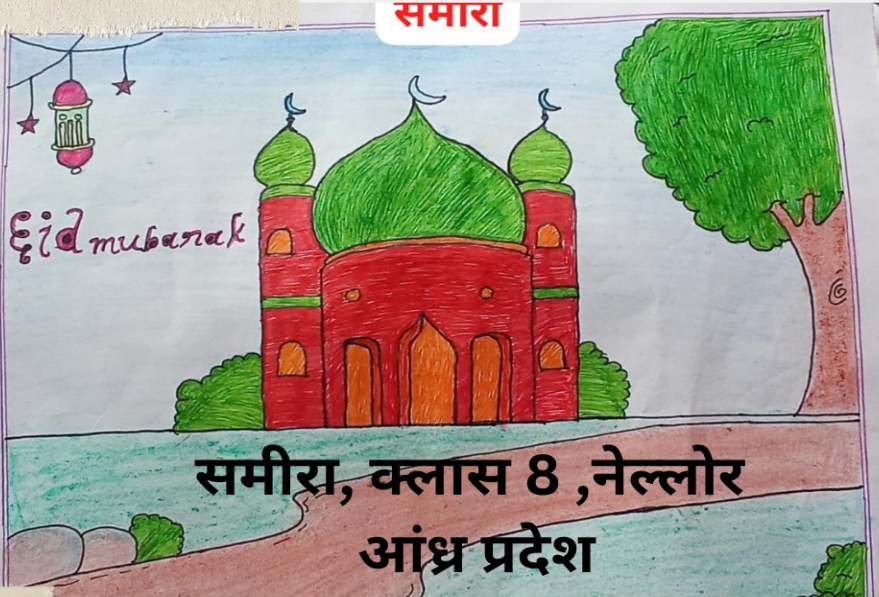 समीरा
Eid mubarak
समीरा, क्लास 8 ,नेल्लोर
आंध्र प्रदेश